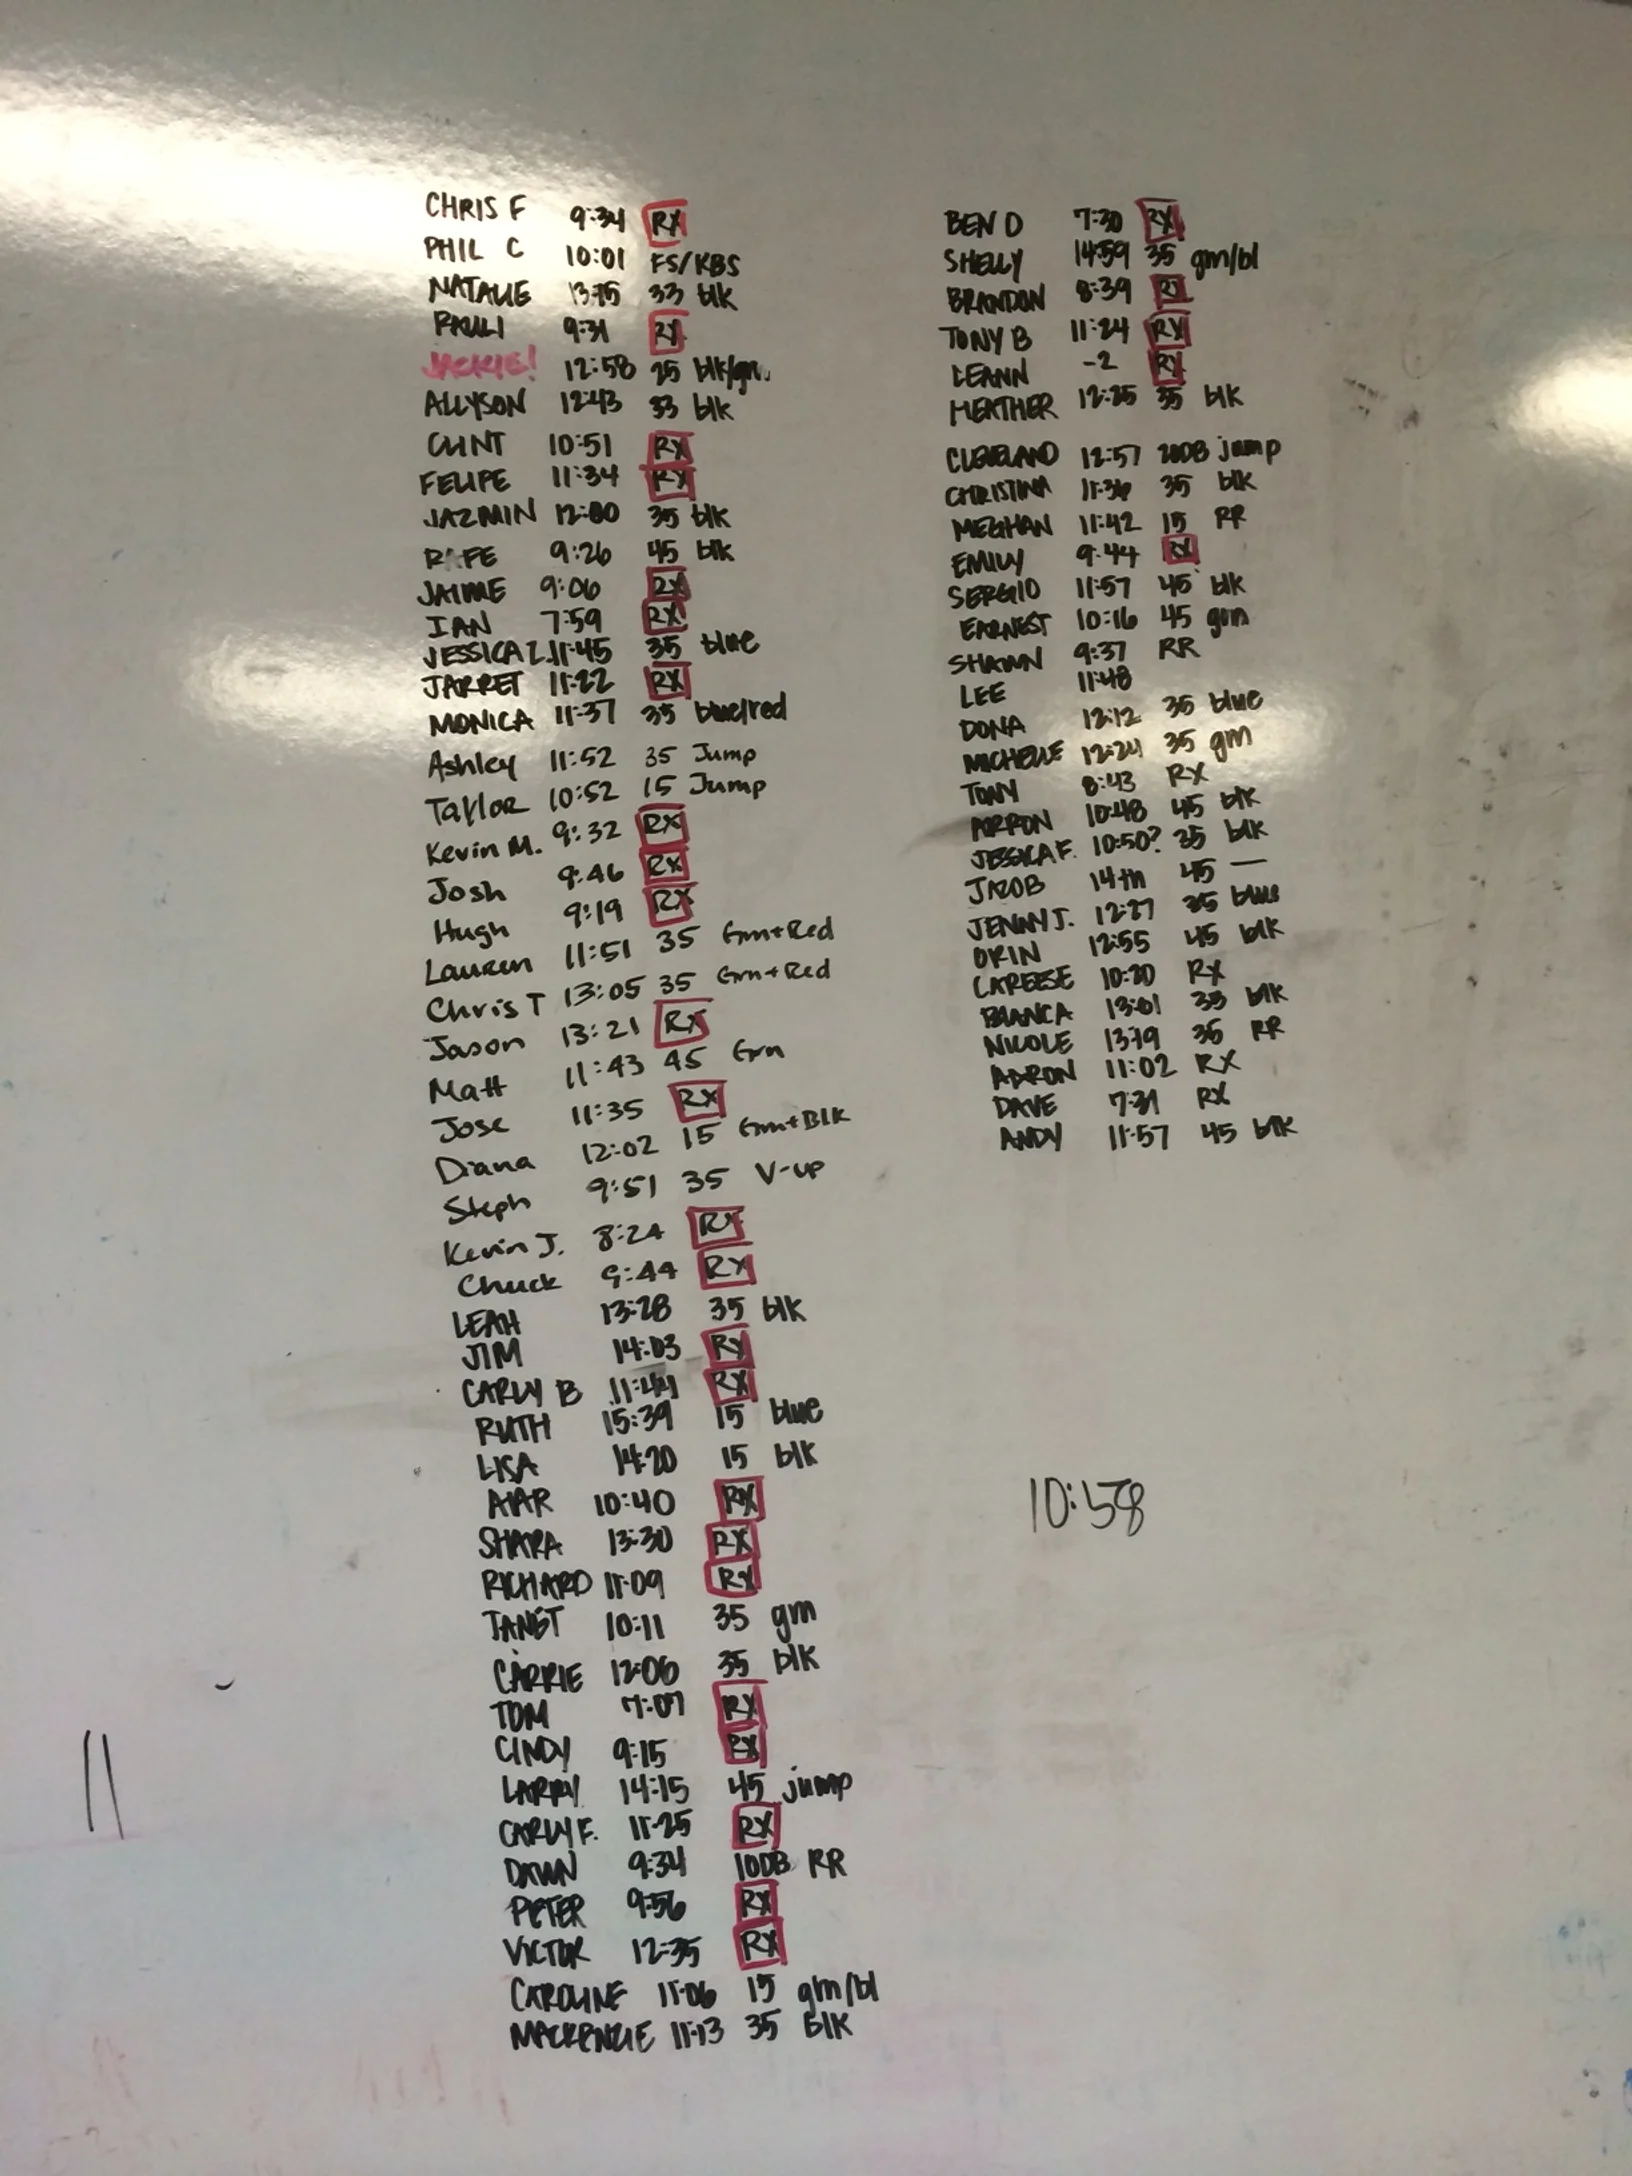 CHRIS F 9:34 RX
PHIL C 10:01 FS/KBS
NATALIE 13:15 33 blk
PAULI 9:31 RX
JACKIE! 12:58 25 blk/grn
ALLYSON 12:43 33 blk
CLINT 10:51 RX
FELIPE 11:34 RX
JAZMIN 12:00 35 blk
RAFE 9:26 45 blk
JAIME 9:06 RX
IAN 7:59 RX
JESSICA Z. 11:45 35 blue
JARRET 11:22 RX
MONICA 11:37 35 blue/red
Ashley 11:52 35 Jump
Taylor 10:52 15 Jump
Kevin M. 9:32 RX
Josh 9:46 RX
Hugh 9:19 RX
Lauren 11:51 35 Grn+Red
Chris T 13:05 35 Grn+Red
Jason 13:21 RX
Matt 11:43 45 Grn
Jose 11:35 RX
Diana 12:02 15 Grn+Blk
Steph 9:51 35 V-up
Kevin J. 8:24 RX
Chuck 9:44 RX
LEAH 13:28 35 blk
JIM 14:03 RX
CARLY B 11:44 RX
RUTH 15:39 15 blue
LISA 14:20 15 blk
10:40 RX
SHARA 13:30 RX
RICHARD 11:09 RX
JANET 10:11 35 grn
CARRIE 12:06 35 blk
TOM 7:07 RX
CINDY 9:15 RX
LARRY 14:15 45 jump
CARLY F. 11:25 RX
DAWN 9:34 10DB RR
PETER 9:56 RX
VICTOR 12:35 RX
CAROLINE 11:06 15 grn/bl
MACKENZIE 11:13 35 blk
BEN D 7:30 RX
SHELLY 14:59 35 grn/bl
BRANDON 8:39 RX
TONY B 11:24 RX
LEANN -2 RX
HEATHER 12:25 35 blk
CLEVELAND 12:57 20DB jump
CHRISTINA 11:36 35 blk
MEGHAN 11:42 15 RR
EMILY 9:44 RX
SERGIO 11:57 45 blk
EARNEST 10:16 45 grn
SHAWN 9:37 RR
LEE 11:48
DONA 12:12 35 blue
MICHELLE 12:24 35 grn
TONY 8:43 RX
10:48 45 blk
JESSICA F. 10:50? 35 blk
JACOB 14th 45 —
JENNY J. 12:27 35 blue
ORIN 12:55 45 blk
CAREESE 10:20 RX
BIANCA 13:01 35 blk
NICOLE 13:19 35 RR
AARON 11:02 RX
DAVE 7:31 RX
ANDY 11:57 45 blk
10:58
11